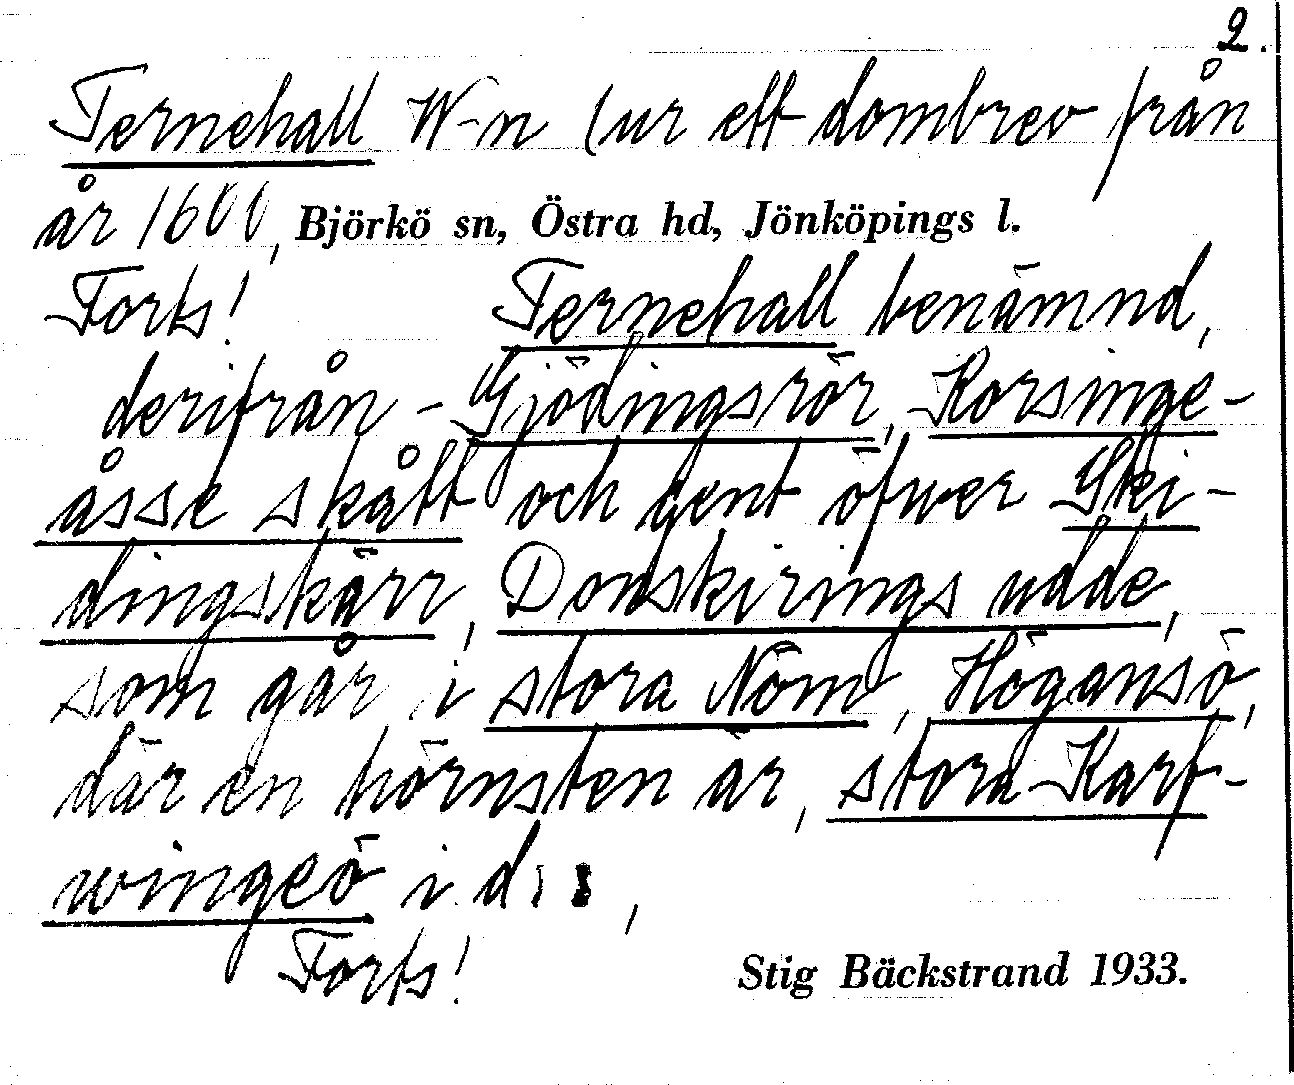 2.
Ternehall W-n (ur ett dombrev från
år 1600, Björkö sn, Östra hd, Jönköpings l.
Forts! Ternehall benämnd,
derifrån - Gjödingsrör, Korsinge-
åsse skått och gent öfwer Ski-
dingskärr, Donskirings udde,
som går i stora Nöm, Högansö,
där en hörnsten är, stora Karf-
wingeö i d:s,
Forts! Stig Bäckstrand 1933.